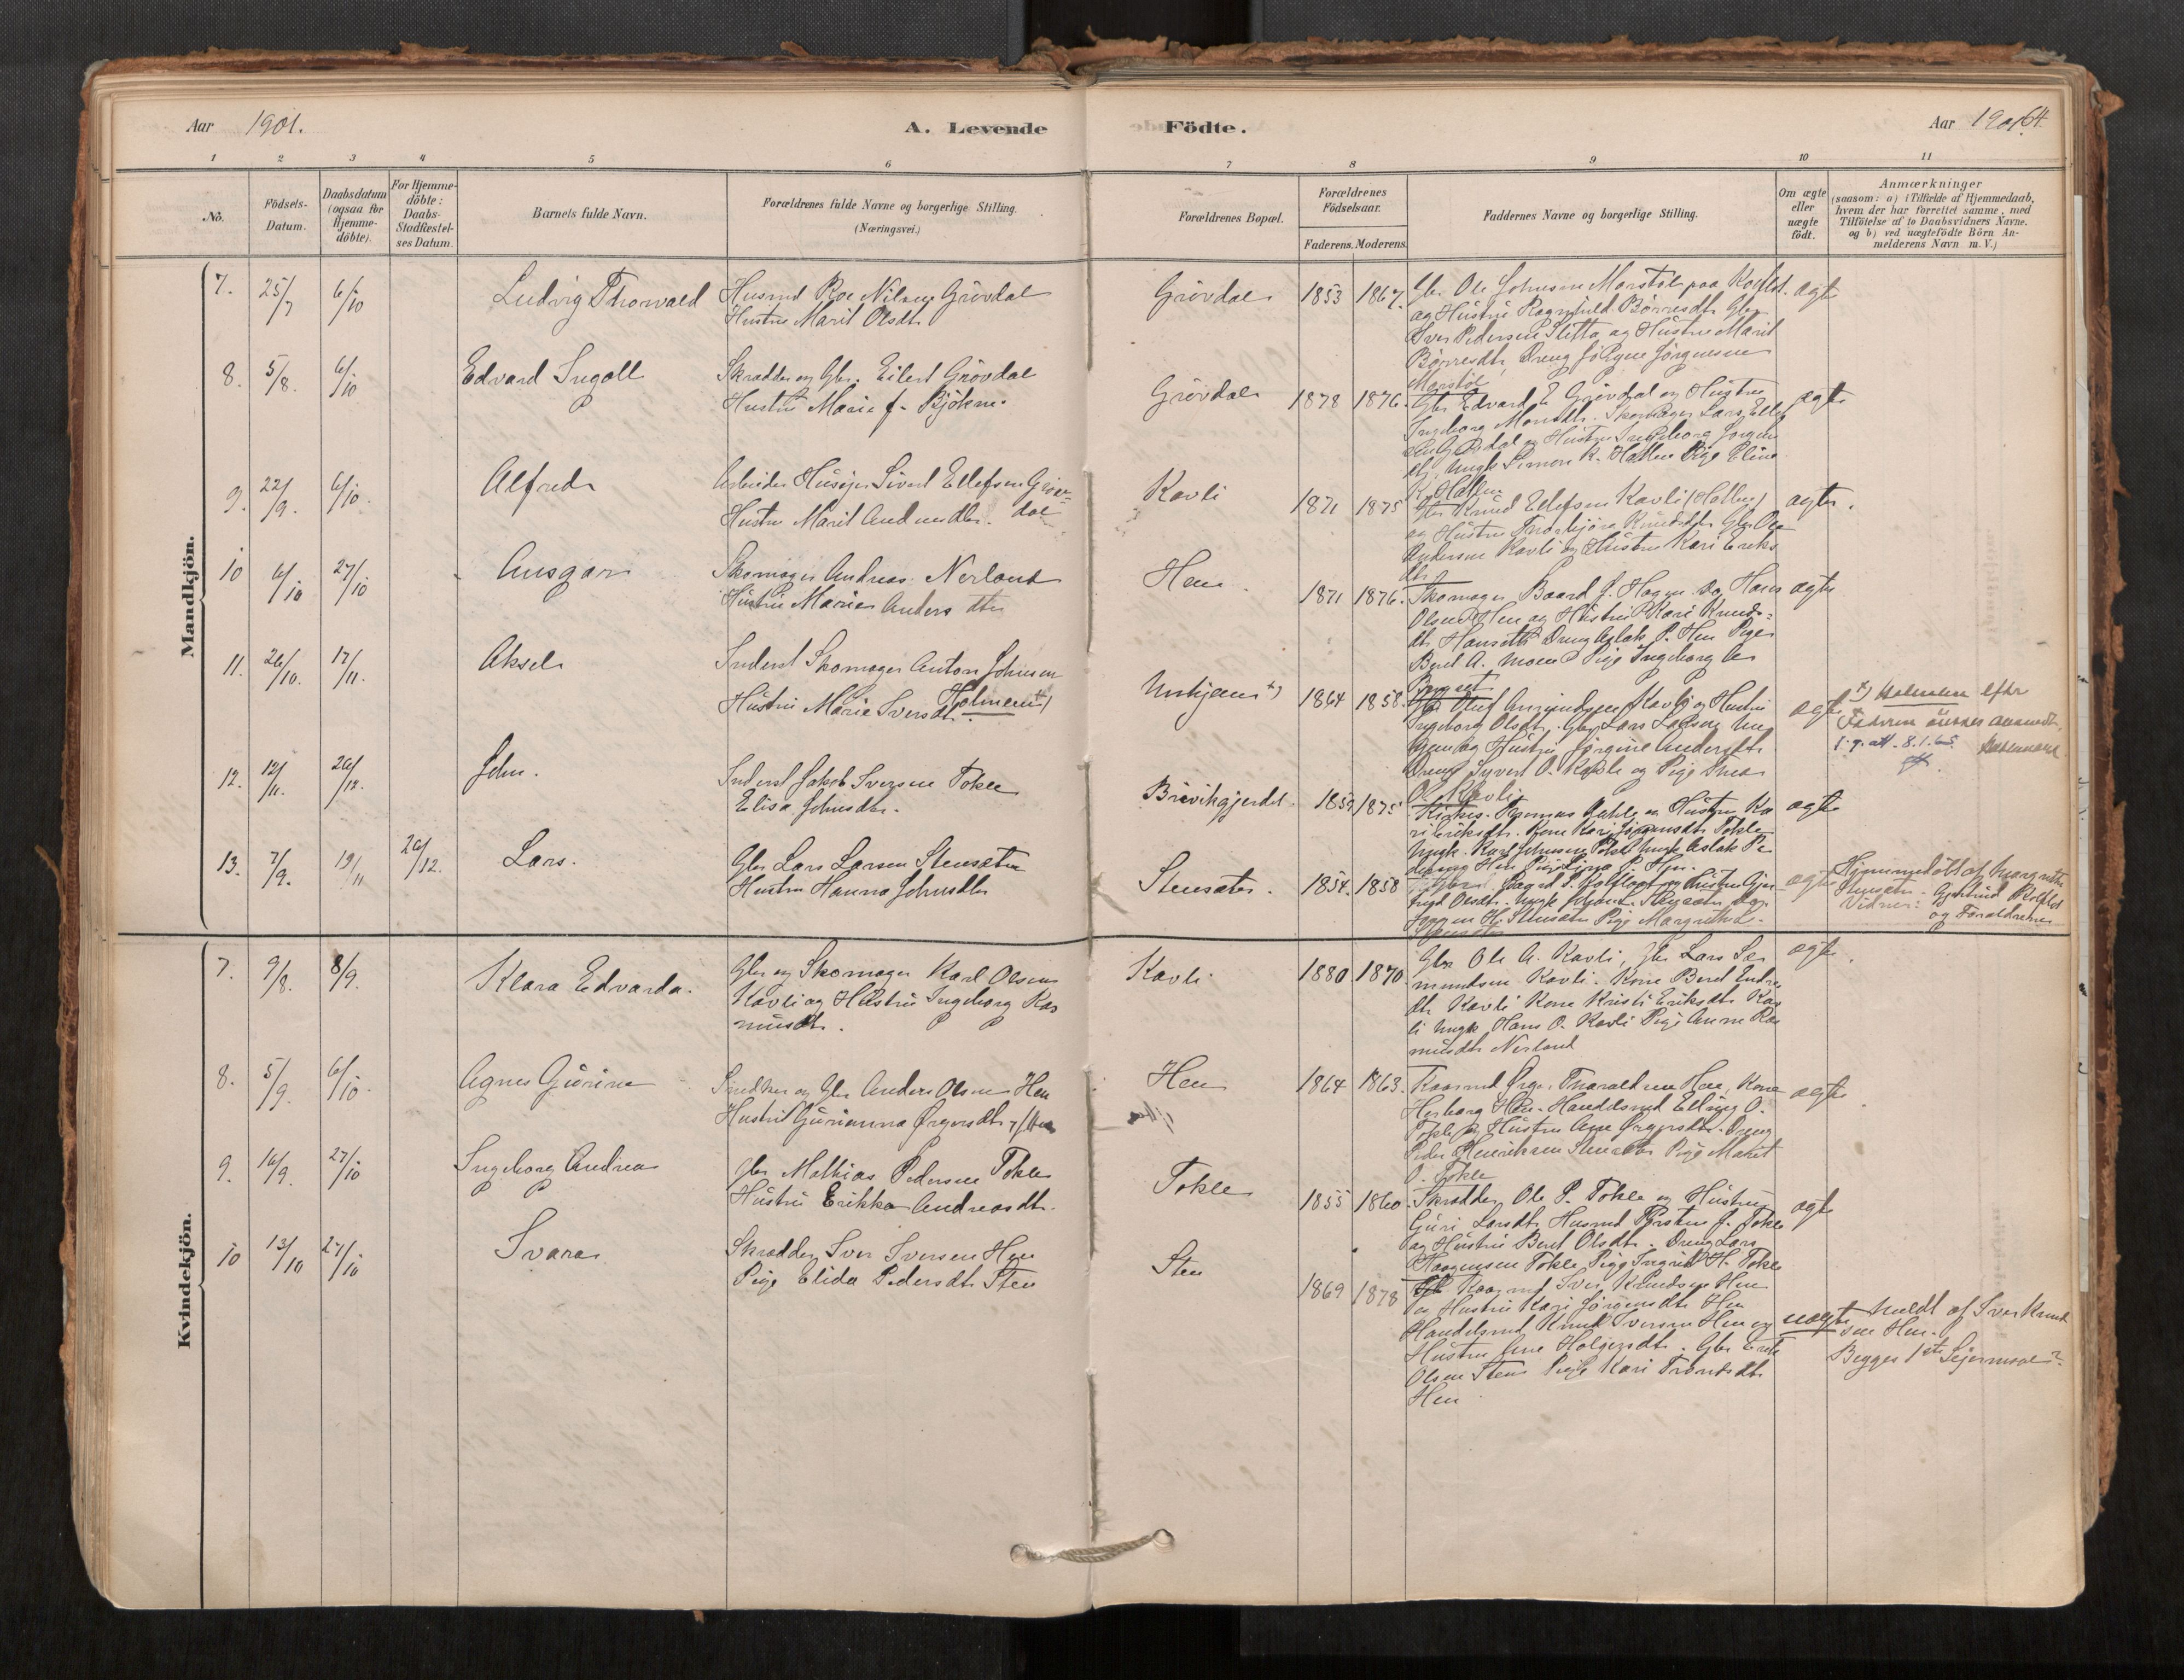 Aar 1901.
A. Levende Födte.
Aar 1901.
64.
1 2 3 4 5 6 7 8 9 10 11
No.
Födsels-Datum.
Daabsdatum (ogsaa for Hjemme-döbte).
For Hjemme-döbte: Daabs-Stadfæstel-ses Datum.
Barnets fulde Navn.
Forældrenes fulde Navne og borgerlige Stilling. (Næringsvei.)
Forældrenes Bopæl.
Forældrenes Födselsaar.
Faderens. Moderens.
Faddernes Navne og borgerlige Stilling.
Om ægte eller uægte födt.
Anmærkninger
(saasom: a) i Tilfælde af Hjemmedaab,
hvem der har forrettet samme, med
Tilföielse af to Daabsvidners Navne.
og b) ved uægtefödte Börn An-
melderens Navn m. V.)
Mandkjön.
7. 25/7 6/10 Ludvig Thorvald
Husmd Roe Nilsen Grövdal
Hustru Marit Olsdtr
Grövdal 1853 1867.
Gbr. Ole Johnsen Marstöl paa
og Hustru Ragnhild Börresdtr Gbr
Iver Pedersen Sletta og Hustru Marit
Börresdtr, Dreng Jörgensen
Marstöl
ægte
8. 5/8. 6/10 Edvard Ingolf
Skrædder og Gbr. Eilert Grövdal
Hustru Marie f. Björkne.
Grövdal 1878 1876.
Gbr Edvard E Grövdal og Hustru
Ingeborg Monsdtr. Skomager Lars
og Hustru Ingeborg
Ungk Simon K. Hatlen Pige Eline
K. Hatlen
ægte
9. 22/9. 6/10. Alfred
Arbeider Husejer Sivert Ellefsen Gröv-
dal
Hustru Marit
Kavli 1871 1875
Gbr Knud Ellefsen Kavli (Hatlen)
og Hustru Knudsdtr Gbr Ole
Andersen Kavli og Hustru Kari Eriks
dtr
ægte.
10 6/10 27/10 Ansgar
Skomager Andreas Nerland
Hustru Marie Anders dtr
Hen 1871 1876.
Skomager Baard J. Hagen og Hans
Olsen Hen og Hustru Kari Knuds-
dtr Dreng Aslak P. Hen Pige
Beret A. Moen Pige Ingeborg A
ægte
11. 26/10. 17/11. Aksel
Inderst Skomager Anton Johnsen
Holmem +)
Hustru Marie Iversdtr.
Unhjem +) 1864 1858.
Gbr Oluf Amundsen Kavli og Hustru
Ingeborg Olsdtr. Gbr Lars Larsen Un
hjem og Hustru Jörgine Andersdtr
Dreng Syvert O. Kavli og Pige
O. Kavli
ægte
+) Holmem efter
Faderens
8.1.65.
12. 12/11. 26/12. John.
Inderst Jakob Iversen Tokle
Elisa Johnsdtr.
Brevikgjerdet. 1859 1875
Thomas og Hustru Ka
ri Eriksdtr. Kone Kari Jörgensdtr Tokle
Ungk. Karl Johnsen Tokle Ungk Aslak Pe
Hen
ægte
13. 7/9. 19/11 26/12. Lars.
Gbr Lars Larsen Stensæter
Hustru Hanna Johnsdtr
Stensæter. 1854. 1858
og Hustru Gjer
trud Olsdtr. Ungk Stensæter
H. Stensæter Pige Margrethe L.
Stensæter
ægte
Hjemmedöbt af Margrethe
Stensæter. Gjertrud
Vidner:
og Forældrene
Kvindekjön.
7. 9/8. 8/9. Klara Edvarda.
Gbr og Skomager Karl Olsen
Kavli og Hustru Ingeborg Ras
musdtr.
Kavli 1880 1870.
Gbr Ole A. Kavli, Gbr Lars Sæ
mundsen Kavli. Kone Beret Endre
dtr Kavli Kone Kristi Eriksdtr Kav
li Ungk Hans O. Kavli Pige Anne Ras
musdtr Nerland
ægte.
8. 5/9. 6/10. Agnes Gurine
Snedker og Gbr Anders Olsen Hen
Hustru Gurianna Ørgersdtr
Hen 1864 1863.
Kaarmd Ørger Tharaldsen Hen, Kone
Herborg Hen. Handelsmd Elling O.
Tokle og Hustru Ane Ørgersdtr. Dreng
Peder Henriksen Stensæter Pige Marit
O. Tokle
ægte
9. 16/9. 27/10 Ingeborg Andrea
Gbr Mathias Pedersen Tokle
Hustru Erikka Andreasdtr.
Tokle 1855 1860.
Skrædder Ole P. Tokle og Hustru
Guri Larsdtr Husmd Torsten J. Tokle
og Hustru Beret Olsdtr. Dreng Lars
Haagensen Tokle Pige Ingrid H. Tokle
ægte
10 13/10 27/10 Svara
Skrædder Iver Iversen Hen
Pige Elida Pedersdtr Sten
Sten 1869 1878
Kaarmd Iver Knudsen Hen
og Hustru Kari Jörgensdtr Hen
Handelsmd Knud Iversen Hen og
Hustru Ane Holgersdtr. Gbr Erik
Olsen Sten Pige Kari Trondsdtr
Hen
uægte
Meldt af Iver Knud
sen Hen.
Begges 1ste Leiermaal.